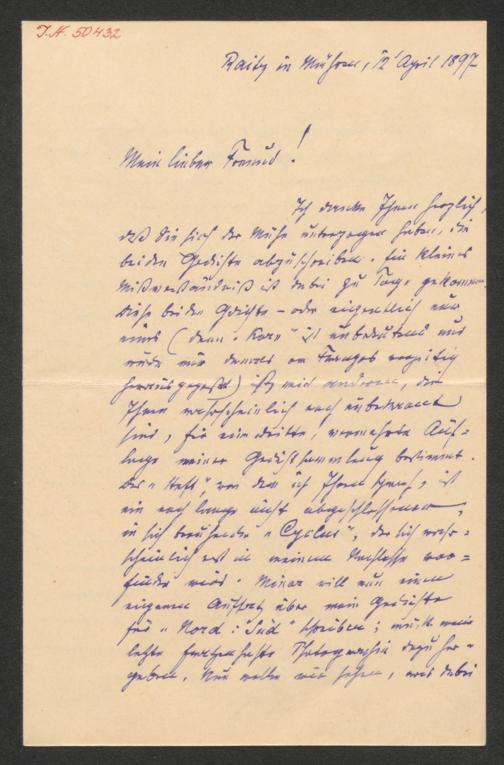 I.N. 50432
Raitz in Mähren, 12 April 1897
Mein lieber Freund!
Ich danke Ihnen herzlich,
daß Sie sich der Mühe unterzogen haben, die
beiden Gedichte abzuschreiben. Ein kleines
Mißverständniß ist dabei zu Tage gekommen.
Diese beiden Gedichte – oder eigentlich nur
eines (denn " " ist unbedeutend und
wurde mir damals von
herausgepreßt) ist, mit anderen, die
Ihnen wahrscheinlich noch unbekannt
sind, für eine dritte, vermehrte Auf-
lage meiner Gedichtsammlung bestimmt.
Das "Heft", von dem ich Ihnen sprach, ist
ein noch lange nicht abgeschlossener,
in sich beruhender "Cyclus", der sich wahr-
scheinlich erst in meinem Nachlasse vor-
finden wird. Minor will nun einen
eigenen Aufsatz über mein Gedichte
für "Nord u. Süd" schreiben; mußte meine
letzte Photographie dazu her-
geben. Nun wollen wir sehen, was dabei